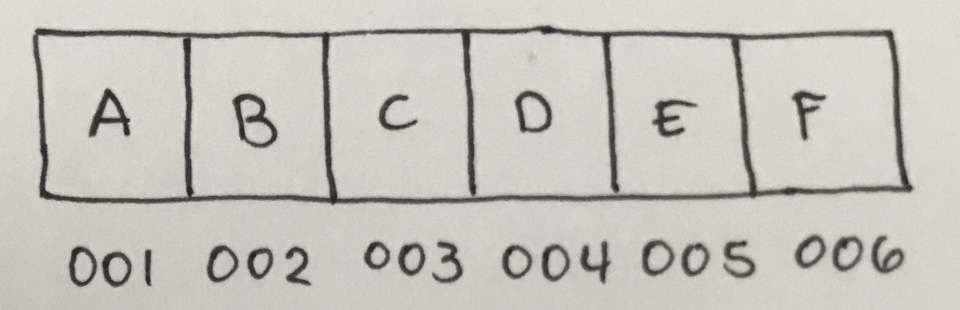 A B C D E F
001 002 003 004 005 006